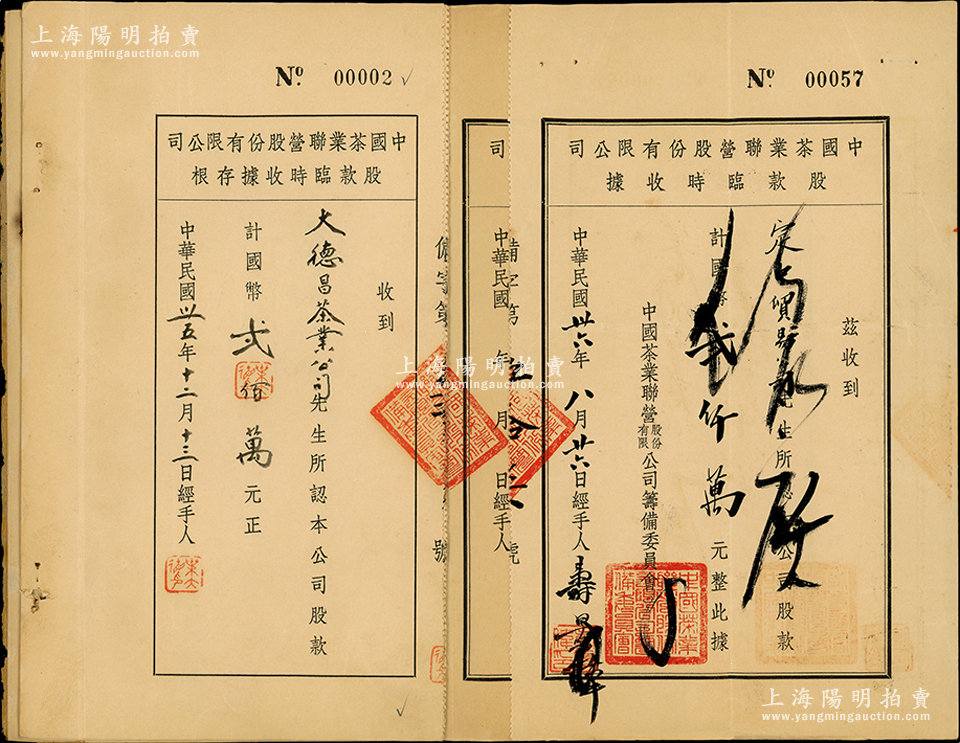 上海陽明拍賣
www.yangmingauction.com
Nº 00057
中國茶業聯營股份有限公司
股款臨時收據
茲收到
先生所認本公司股款
計國幣 貳仟萬 元整此據
中國茶業聯營股份有限公司籌備委員會
中華民國卅六年八月廿六日經手人 壽景偉
中國茶業聯營股份有限公司籌備委員會
司
中華民國 年 月 日經手人
備字第 號
Nº 00002
中國茶業聯營股份有限公司
股款臨時收據存根
收到
大德昌茶業公司先生所認本公司股款
計國幣 貳佰萬 元正
中華民國卅五年十二月十三日經手人
備字第 號
上海陽明拍賣
www.yangmingauction.com
上海陽明拍賣
www.yangmingauction.com